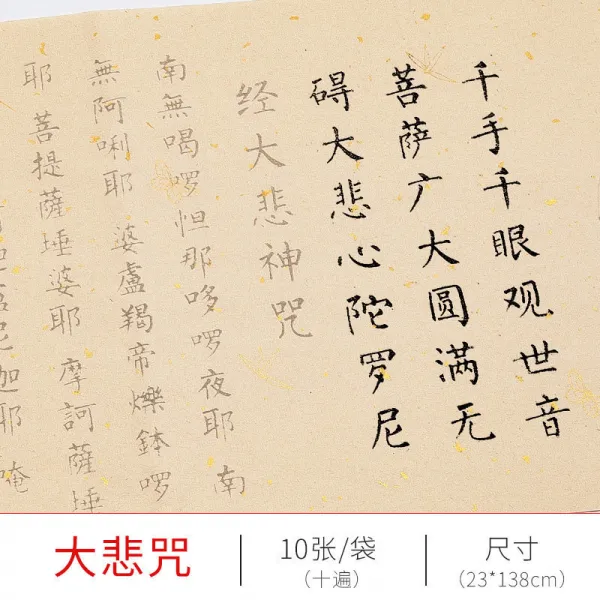 千手千眼观世音
菩萨广大圆满无
碍大悲心陀罗尼
经大悲神咒
南無喝啰怛那哆啰夜耶 南
無阿唎耶 婆盧羯帝爍鉢啰
耶 菩提薩埵婆耶 摩訶薩埵
迦耶 唵
大悲咒
10张/袋
（十遍）
尺寸
（23*138cm）